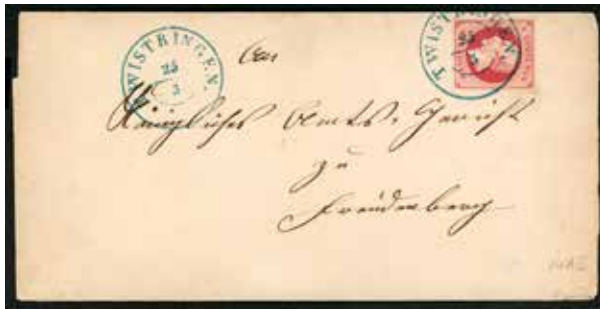 TWISTRINGEN.
25
3
TWISTRINGEN.
25
3
An
Königliches Amts-Gericht
zu
Freudenberg